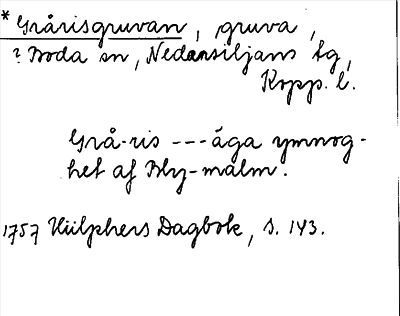 * Grårisgruvan, gruva,
? Boda sn, Nedansiljans tg,
Kopp. l.
Grå-ris --- äga ymnog-
het af Bly-malm.
1757 Hülphers Dagbok, s. 143.